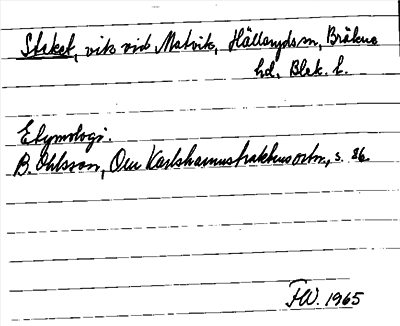 Steket, vik vid Matvik, Hällaryds sn, Bräkne
hd, Blek. l.
Etymologi.
B. Ohlsson, Om Karlshamnstrakten s ortn., s. 86.
FW. 1965